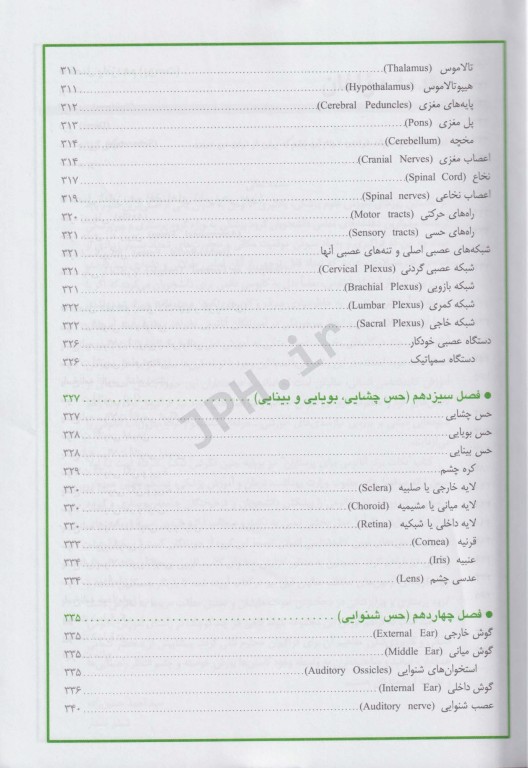 تالاموس (Thalamus) ۳۱۱
هیپوتالاموس (Hypothalamus) ۳۱۱
پایه‌های مغزی (Cerebral Peduncles) ۳۱۲
پل مغزی (Pons) ۳۱۳
مخچه (Cerebellum) ۳۱۴
اعصاب مغزی (Cranial Nerves) ۳۱۴
نخاع (Spinal Cord) ۳۱۷
اعصاب نخاعی (Spinal nerves) ۳۱۹
راه‌های حرکتی (Motor tracts) ۳۲۰
راه‌های حسی (Sensory tracts) ۳۲۱
شبکه‌های عصبی اصلی و تنه‌های عصبی آنها ۳۲۱
شبکه عصبی گردنی (Cervical Plexus) ۳۲۱
شبکه بازویی (Brachial Plexus) ۳۲۱
شبکه کمری (Lumbar Plexus) ۳۲۲
شبکه خاجی (Sacral Plexus) ۳۲۲
دستگاه عصبی خودکار ۳۲۶
دستگاه سمپاتیک ۳۲۶
● فصل سیزدهم (حس چشایی، بویایی و بینایی) ۳۲۷
حس چشایی ۳۲۷
حس بویایی ۳۲۸
حس بینایی ۳۲۸
کره چشم ۳۲۹
لایه خارجی یا صلبیه (Sclera) ۳۳۰
لایه میانی یا مشیمیه (Choroid) ۳۳۰
لایه داخلی یا شبکیه (Retina) ۳۳۰
قرنیه (Cornea) ۳۳۳
عنبیه (Iris) ۳۳۴
عدسی چشم (Lens) ۳۳۴
● فصل چهاردهم (حس شنوایی) ۳۳۵
گوش خارجی (External Ear) ۳۳۵
گوش میانی (Middle Ear) ۳۳۵
استخوان‌های شنوایی (Auditory Ossicles) ۳۳۵
گوش داخلی (Internal Ear) ۳۳۶
عصب شنوایی (Auditory nerve) ۳۴۰
JPH.ir